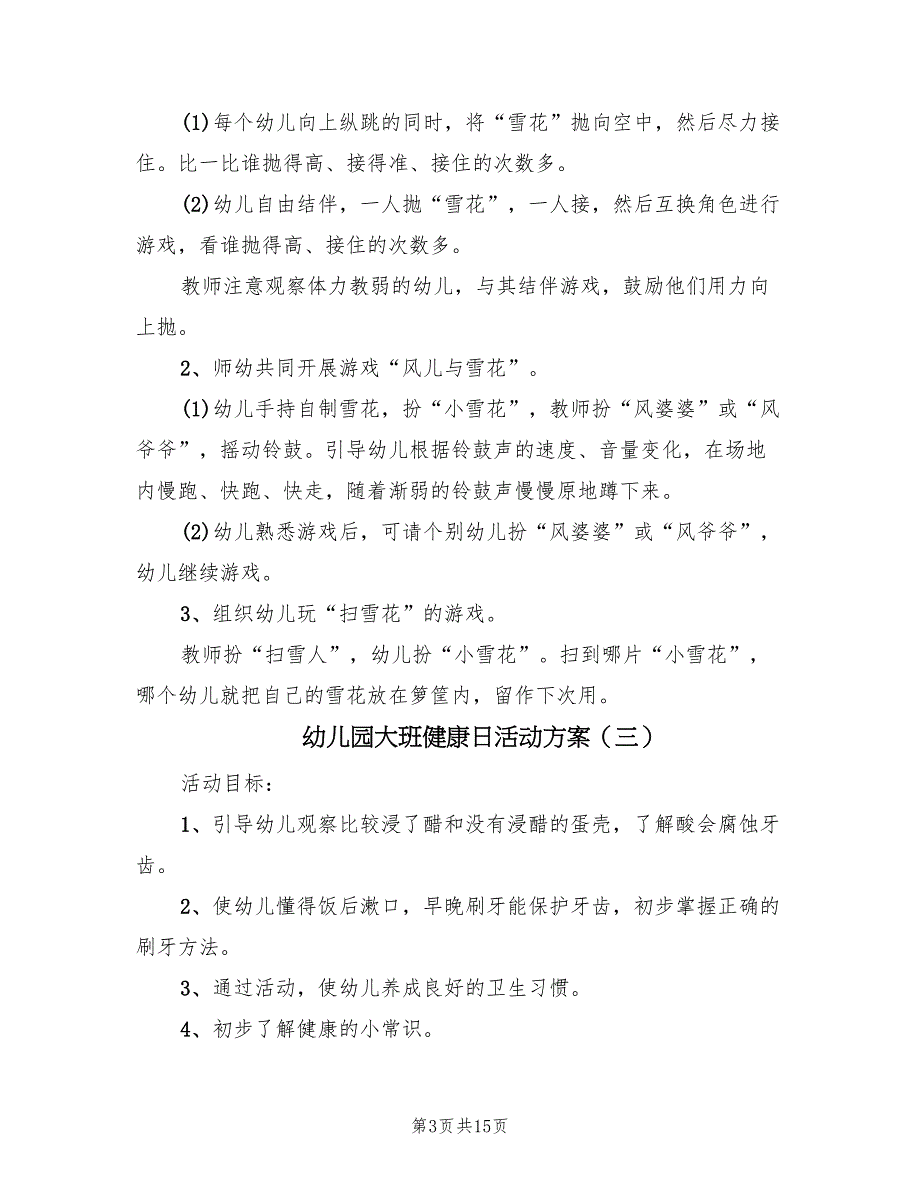 (1)每个幼儿向上纵跳的同时，将“雪花”抛向空中，然后尽力接
住。比一比谁抛得高、接得准、接住的次数多。
(2)幼儿自由结伴，一人抛“雪花”，一人接，然后互换角色进行
游戏，看谁抛得高、接住的次数多。
教师注意观察体力教弱的幼儿，与其结伴游戏，鼓励他们用力向
上抛。
2、师幼共同开展游戏“风儿与雪花”。
(1)幼儿手持自制雪花，扮“小雪花”，教师扮“风婆婆”或“风
爷爷”，摇动铃鼓。引导幼儿根据铃鼓声的速度、音量变化，在场地
内慢跑、快跑、快走，随着渐弱的铃鼓声慢慢原地蹲下来。
(2)幼儿熟悉游戏后，可请个别幼儿扮“风婆婆”或“风爷爷”，
幼儿继续游戏。
3、组织幼儿玩“扫雪花”的游戏。
教师扮“扫雪人”，幼儿扮“小雪花”。扫到哪片“小雪花”，
哪个幼儿就把自己的雪花放在箩筐内，留作下次用。
幼儿园大班健康日活动方案（三）
活动目标：
1、引导幼儿观察比较浸了醋和没有浸醋的蛋壳，了解酸会腐蚀牙
齿。
2、使幼儿懂得饭后漱口，早晚刷牙能保护牙齿，初步掌握正确的
刷牙方法。
3、通过活动，使幼儿养成良好的卫生习惯。
4、初步了解健康的小常识。
第3页共15页